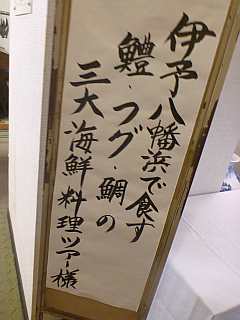 伊予八幡浜で食す
鱧・フグ・鯛の
三大海鮮料理ツアー様